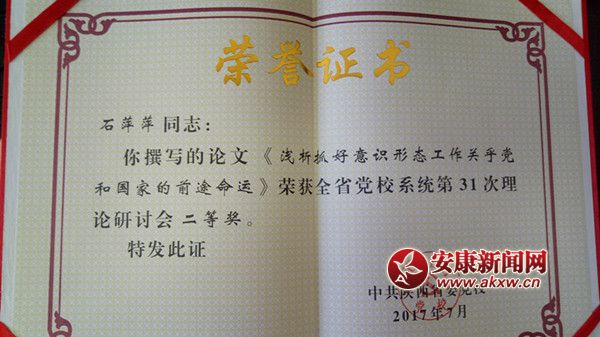 荣誉证书
石萍萍同志：
你撰写的论文《浅析抓好意识形态工作关乎党
和国家的前途命运》荣获全省党校系统第31次理
论研讨会二等奖。
特发此证
安康新闻网
www.akxw.cn
中共陕西省委党校
2017年7月